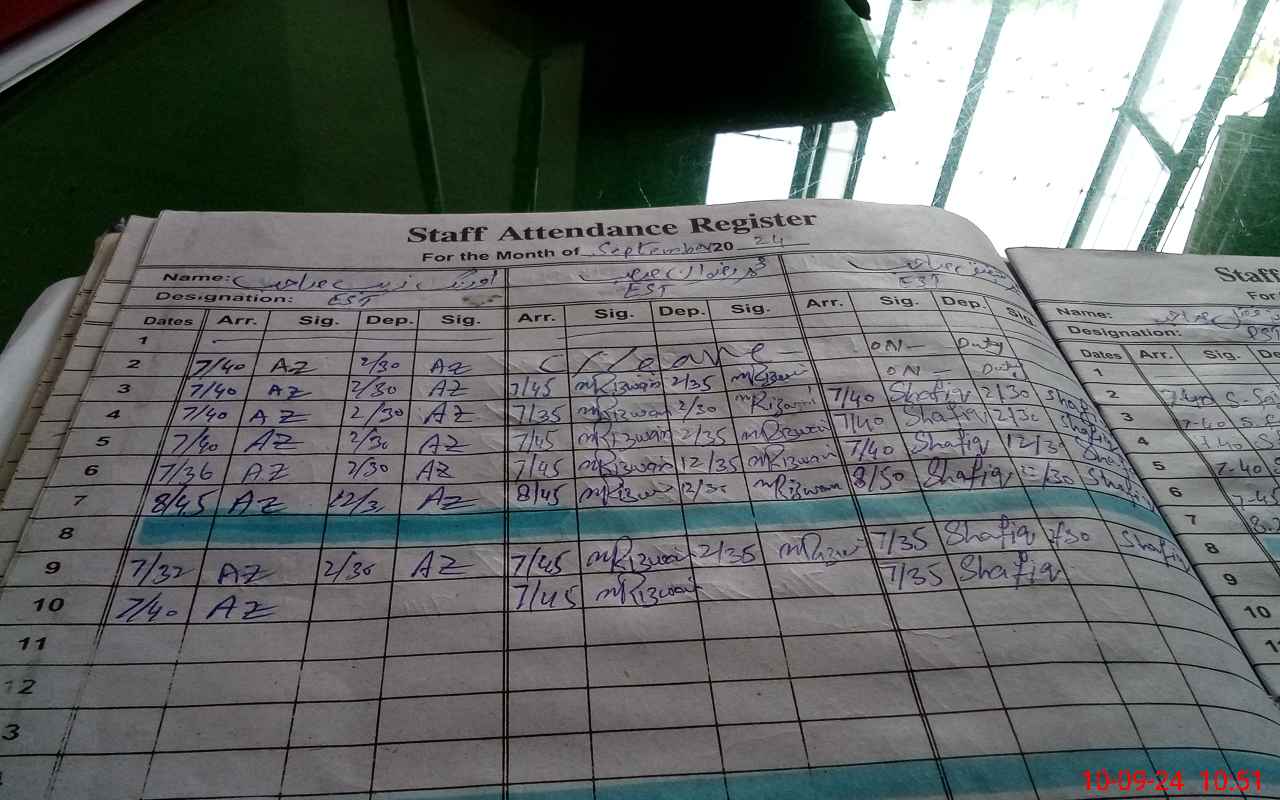 Staff Attendance Register
For the Month of September 20 24
Name: اورنگ زیب صاحب محمد رضوان صاحب
Designation: EST EST EST
Dates Arr. Sig. Dep. Sig. Arr. Sig. Dep. Sig. Arr. Sig. Dep. Sig.
1 ON — Duty
2 7/40 AZ 2/30 AZ C/Leave ON — Duty
3 7/40 AZ 2/30 AZ 7/45 mRizwan 2/35 mRizwan 7/40 Shafiq 2/30 Shafiq
4 7/40 AZ 2/30 AZ 7/35 mRizwan 2/30 mRizwan 7/40 Shafiq 2/30 Shafiq
5 7/40 AZ 2/30 AZ 7/45 mRizwan 2/35 mRizwan 7/40 Shafiq 12/30 Shafiq
6 7/36 AZ 2/30 AZ 7/45 mRizwan 12/35 mRizwan 8/50 Shafiq 12/30 Shafiq
7 8/45 AZ 12/30 AZ 8/45 mRizwan 12/30 mRizwan
8
9 7/32 AZ 2/30 AZ 7/45 mRizwan 2/35 mRizwan 7/35 Shafiq 2/30 Shafiq
10 7/40 AZ 7/45 mRizwan 7/35 Shafiq
11
12
3
Staff
For
Name:
Designation: PST
Dates Arr. Sig. Dep.
1
2
3 7-40
4 7-40
5 7-40
6 7-45
7
8
9
10
10-09-24 10:51